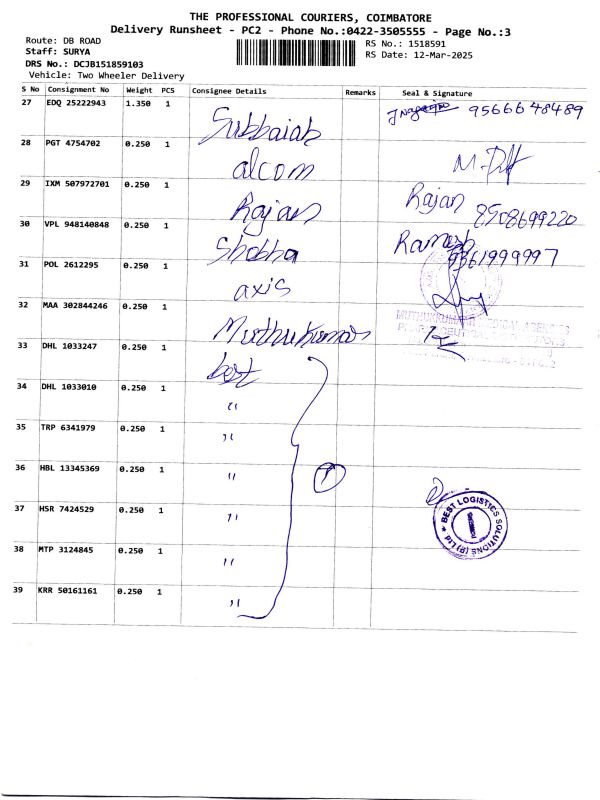 THE PROFESSIONAL COURIERS, COIMBATORE
Delivery Runsheet - PC2 - Phone No.:0422-3505555 - Page No.:3
Route: DB ROAD
Staff: SURYA
DRS No.: DCJB151859103
Vehicle: Two Wheeler Delivery
RS No.: 1518591
RS Date: 12-Mar-2025
S No Consignment No Weight PCS Consignee Details Remarks Seal & Signature
27 EDQ 25222943 1.350 1 Subbaiah 9566648489
28 PGT 4754702 0.250 1 alcom
29 IXM 507972701 0.250 1 Rajan Rajan 8508699220
30 VPL 948140848 0.250 1 Shobha Ramesh 9361999997
31 POL 2612295 0.250 1 axis
32 MAA 302844246 0.250 1 Muthukumar
33 DHL 1033247 0.250 1 best
34 DHL 1033010 0.250 1 "
35 TRP 6341979 0.250 1 "
36 HBL 13345369 0.250 1 "
37 HSR 7424529 0.250 1 "
38 MTP 3124845 0.250 1 "
39 KRR 50161161 0.250 1 "
BEST LOGISTICS SOLUTIONS (P) Ltd